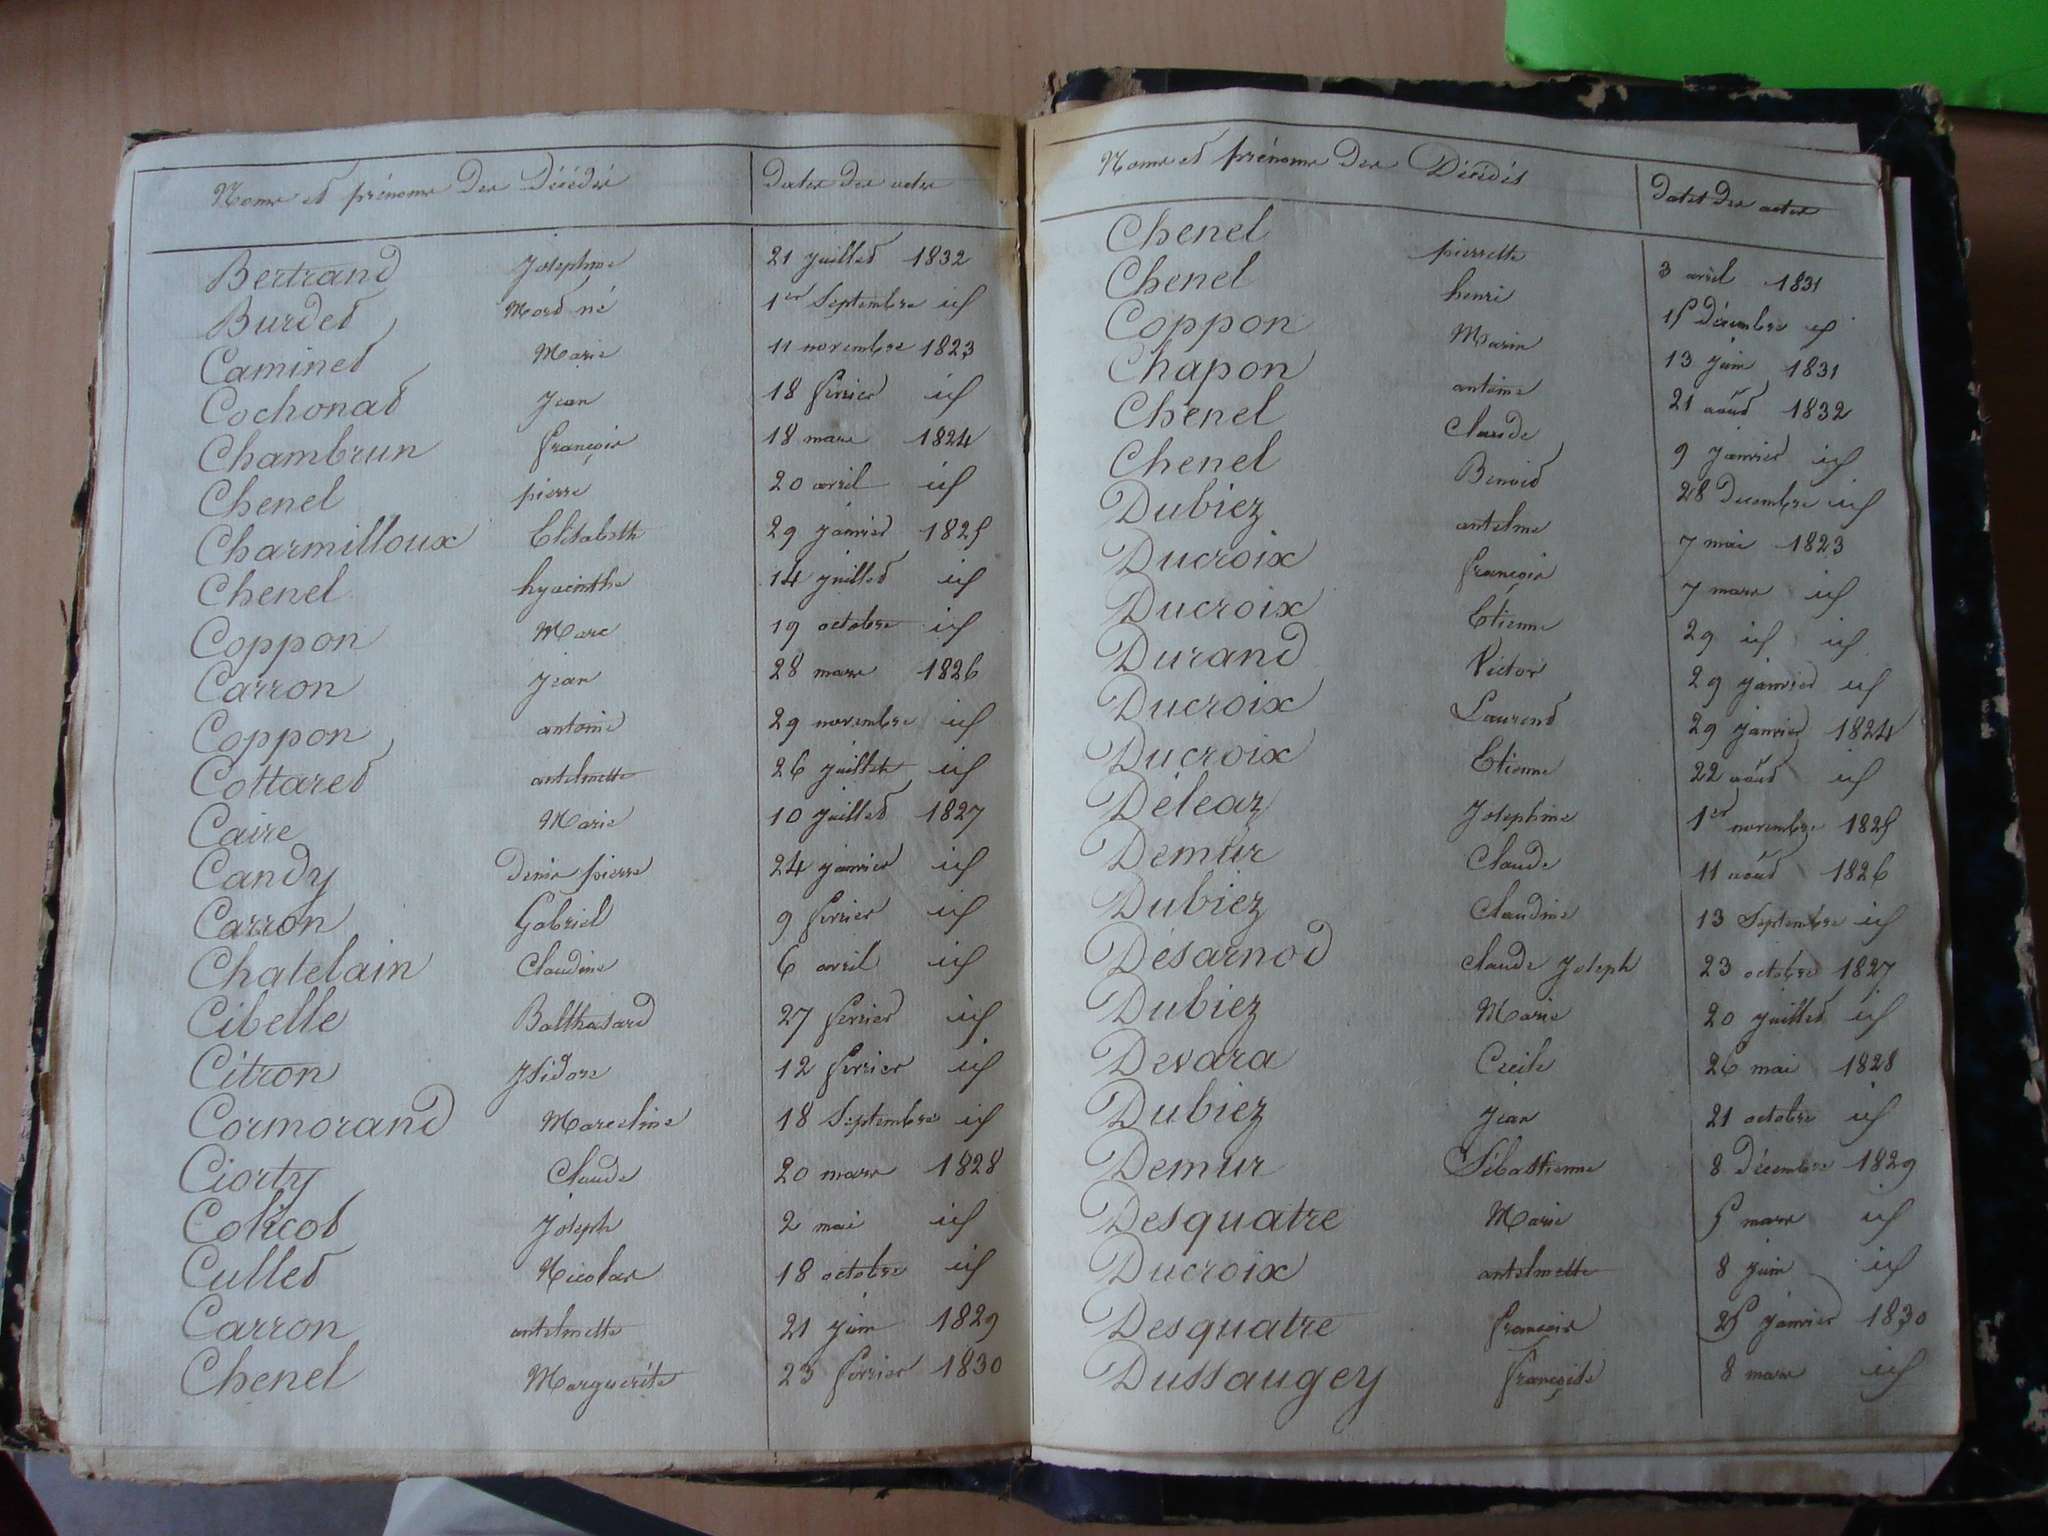 Noms et prénoms des Décédés Dates des actes
Bertrand Josephine 21 juillet 1832
Burdet Mort né 1er Septembre id
Caminet Marie 11 novembre 1823
Cochonat Jean 18 fevrier id
Chambrun françois 18 mars 1824
Chenel pierre 20 avril id
Charmilloux Elisabeth 29 janvier 1825
Chenel hyacinthe 14 juillet id
Coppon Marc 19 octobre id
Carron jean 28 mars 1826
Coppon antoine 29 novembre id
Cottaret antelmette 26 juillet id
Caire Marie 10 juillet 1827
Candy Denis pierre 24 janvier id
Carron Gabriel 9 fevrier id
Chatelain Claudine 6 avril id
Cibelle Balthasard 27 fevrier id
Citron Isidore 12 fevrier id
Cormorand Marceline 18 Septembre id
Ciorty Claude 20 mars 1828
Colicot Joseph 2 mai id
Cullet Nicolas 18 octobre id
Carron antelmette 21 juin 1829
Chenel Marguerite 23 fevrier 1830
Noms et prénoms des Décédés Dates des actes
Chenel pierrette 3 avril 1831
Chenel henri 15 décembre id
Coppon Marin 13 juin 1831
Chapon antoine 21 août 1832
Chenel Claude 9 janvier id
Chenel Benoit 28 decembre id
Dubiez antelme 7 mai 1823
Ducroix françois 7 mars id
Ducroix Etienne 29 id id
Durand Victor 29 janvier id
Ducroix Laurent 29 janvier 1824
Ducroix Etienne 22 août id
Déléaz Josephine 1er novembre 1825
Demur Claude 11 août 1826
Dubiez Claudine 13 Septembre id
Désarnod Claude Joseph 23 octobre 1827
Dubiez Marie 20 juillet id
Devara Cecile 26 mai 1828
Dubiez Jean 21 octobre id
Demur Sébastienne 8 décembre 1829
Desquatre Marie 5 mars id
Ducroix antelmette 8 juin id
Desquatre françois 25 janvier 1830
Dussaugey françoise 8 mars id